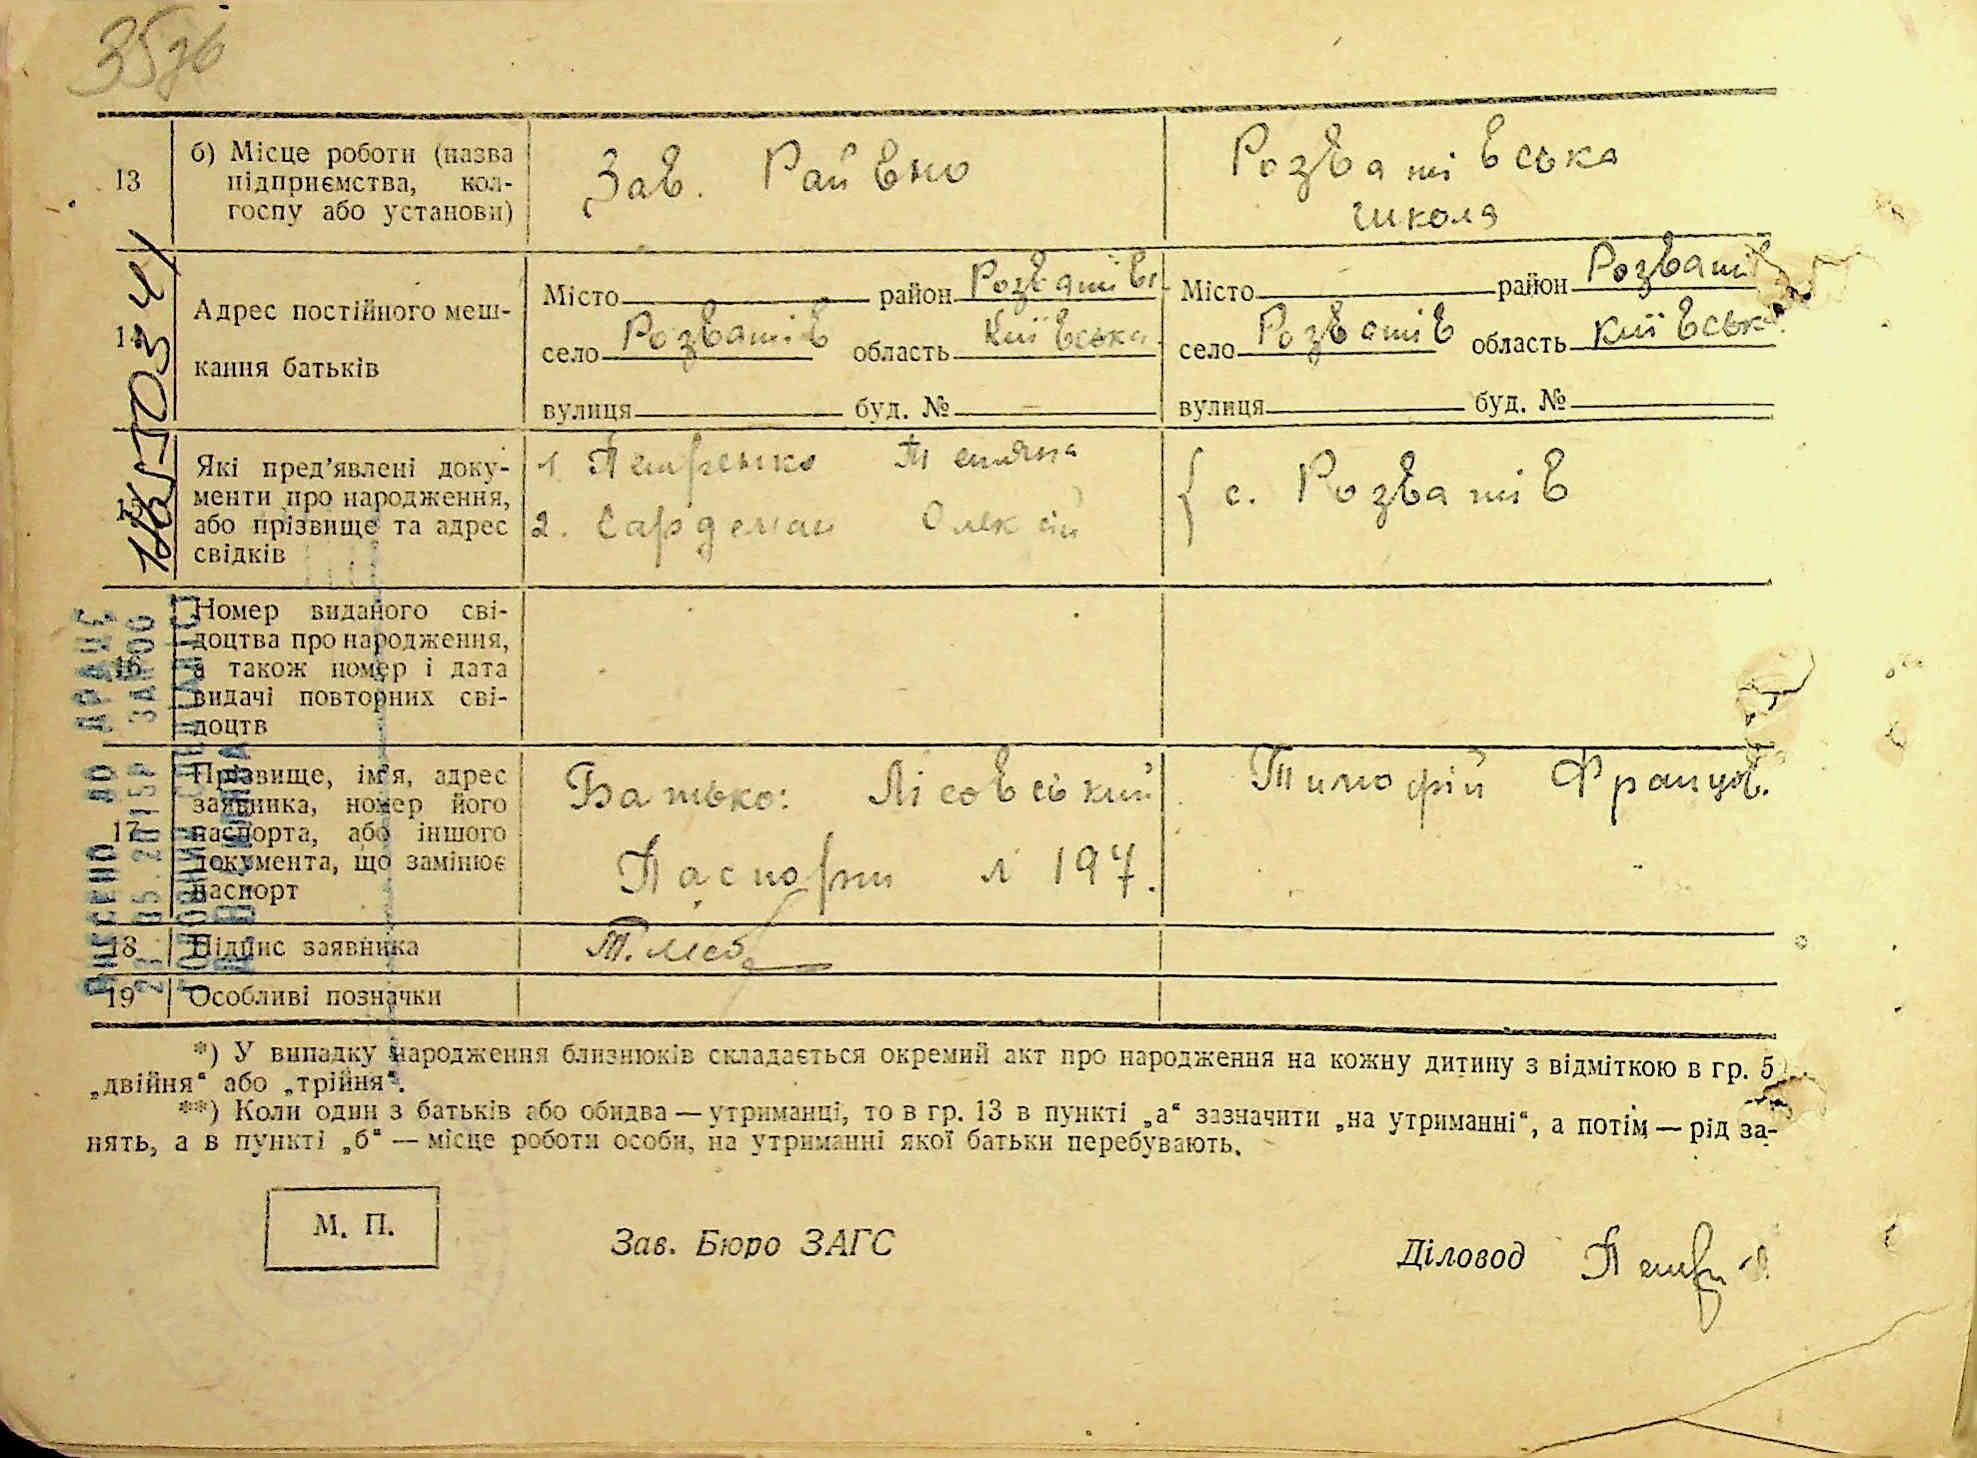 35зв
13
б) Місце роботи (назва
підприємства, кол-
госпу або установи)
Зав. РайВно
Розватівська
школа
14
Адрес постійного меш-
кання батьків
Місто район Розватівс
село Розватів область Київська
вулиця буд. №
Місто район Розваті
село Розватів область Київська
вулиця буд. №
Які пред’явлені доку-
менти про народження,
або прізвище та адрес
свідків
1 Петренко Тетяна
2. Олексій
с. Розватів
16
Номер виданого сві-
доцтва про народження,
а також номер і дата
видачі повторних сві-
доцтв
17
Прізвище, ім’я, адрес
заявника, номер його
паспорта, або іншого
документа, що замінює
паспорт
Батько: Лісовський Тимофій Францов.
Паспорт № 197.
18
Підпис заявника
19
Особливі позначки
*) У випадку народження близнюків складається окремий акт про народження на кожну дитину з відміткою в гр. 5
„двійня“ або „трійня“.
**) Коли один з батьків або обидва — утриманці, то в гр. 13 в пункті „а“ зазначити „на утриманні“, а потім — рід за-
нять, а в пункті „б“ — місце роботи особи, на утриманні якої батьки перебувають.
М. П.
Зав. Бюро ЗАГС
Діловод